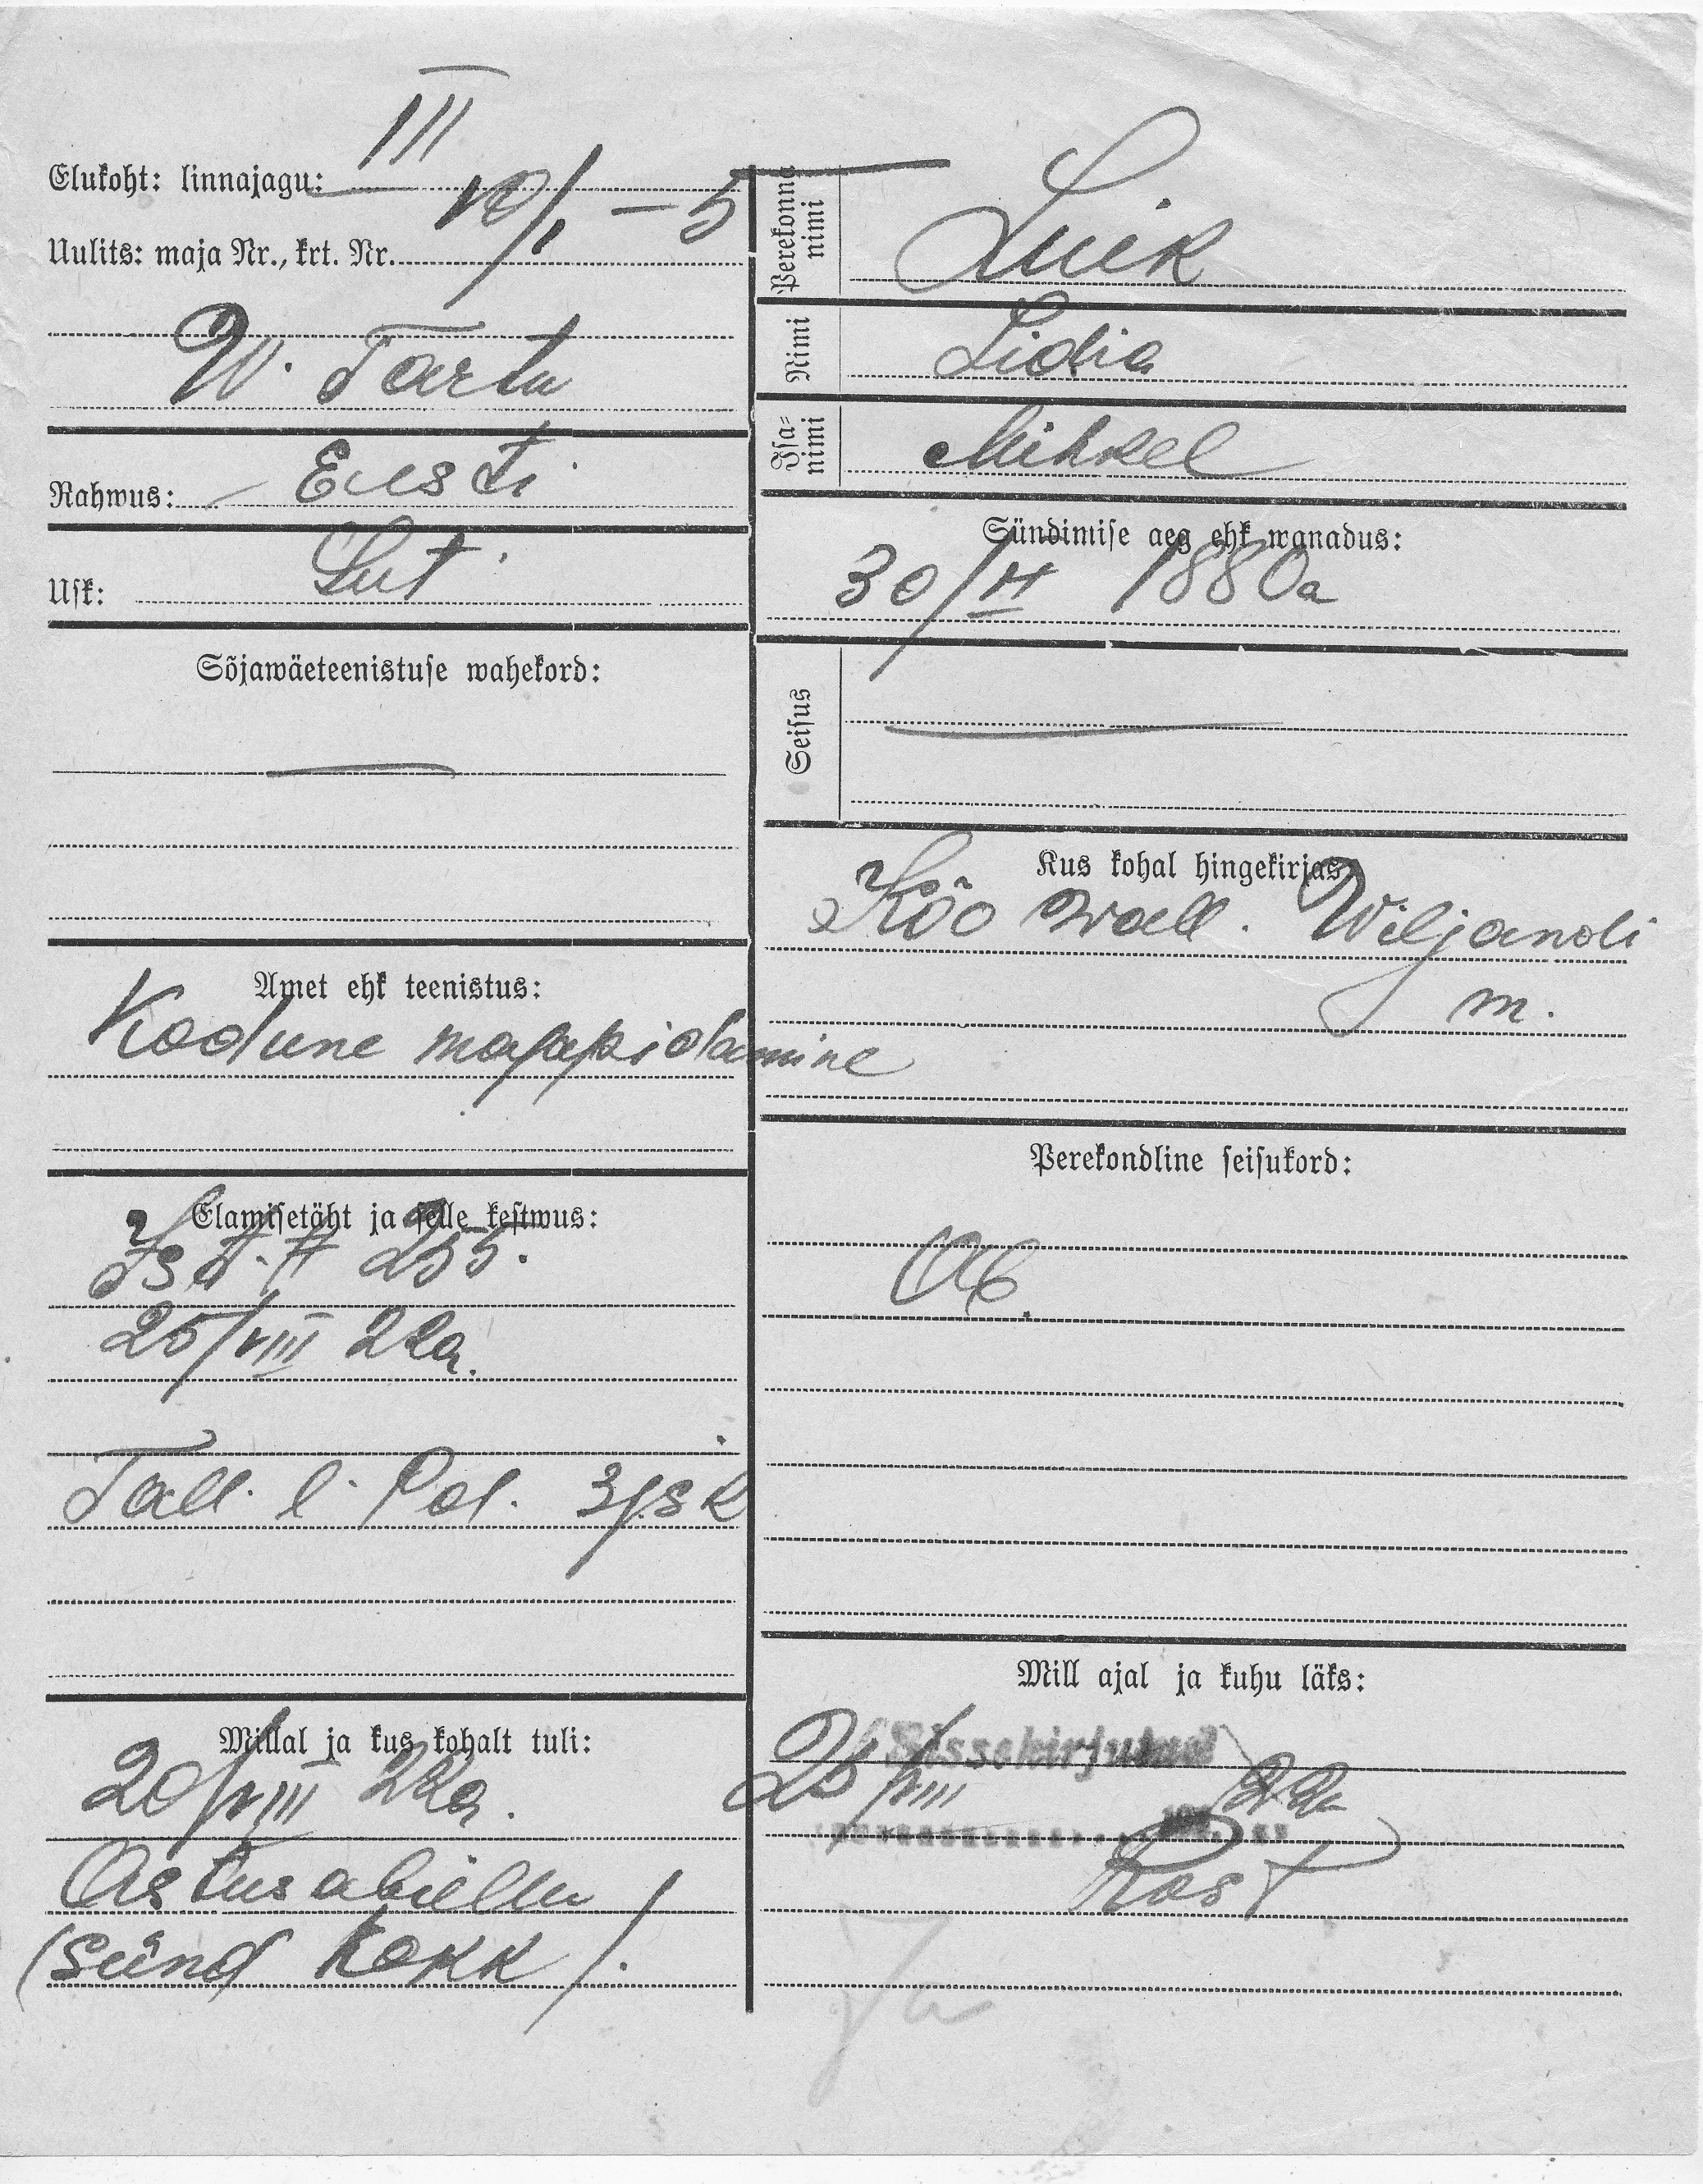 Elukoht: linnajagu: III
Uulits: maja Nr., krt. Nr. 10/1 – 5
W. Tartu
Rahwus: Eesti
Usk: Lut.
Sõjawäeteenistuse wahekord:
Amet ehk teenistus:
Kodune majapidamine
Elamisetäht ja selle kestwus:
255.
25/VIII 22a.
Tall. l. Pol. 3 jsk
Millal ja kus kohalt tuli:
20/VIII 22a.
Astus abiellu
(Sünd Kokk).
Perekonna nimi
Luik
Nimi
Lidia
Isa-nimi
Mihkel
Sündimise aeg ehk wanadus:
30/VI 1880a
Seisus
Kus kohal hingekirjas
Kõo wall. Wiljandi
m.
Perekondline seisukord:
Ab.
Mill ajal ja kuhu läks:
Sissekirjutud
26/VIII 22a
Rost